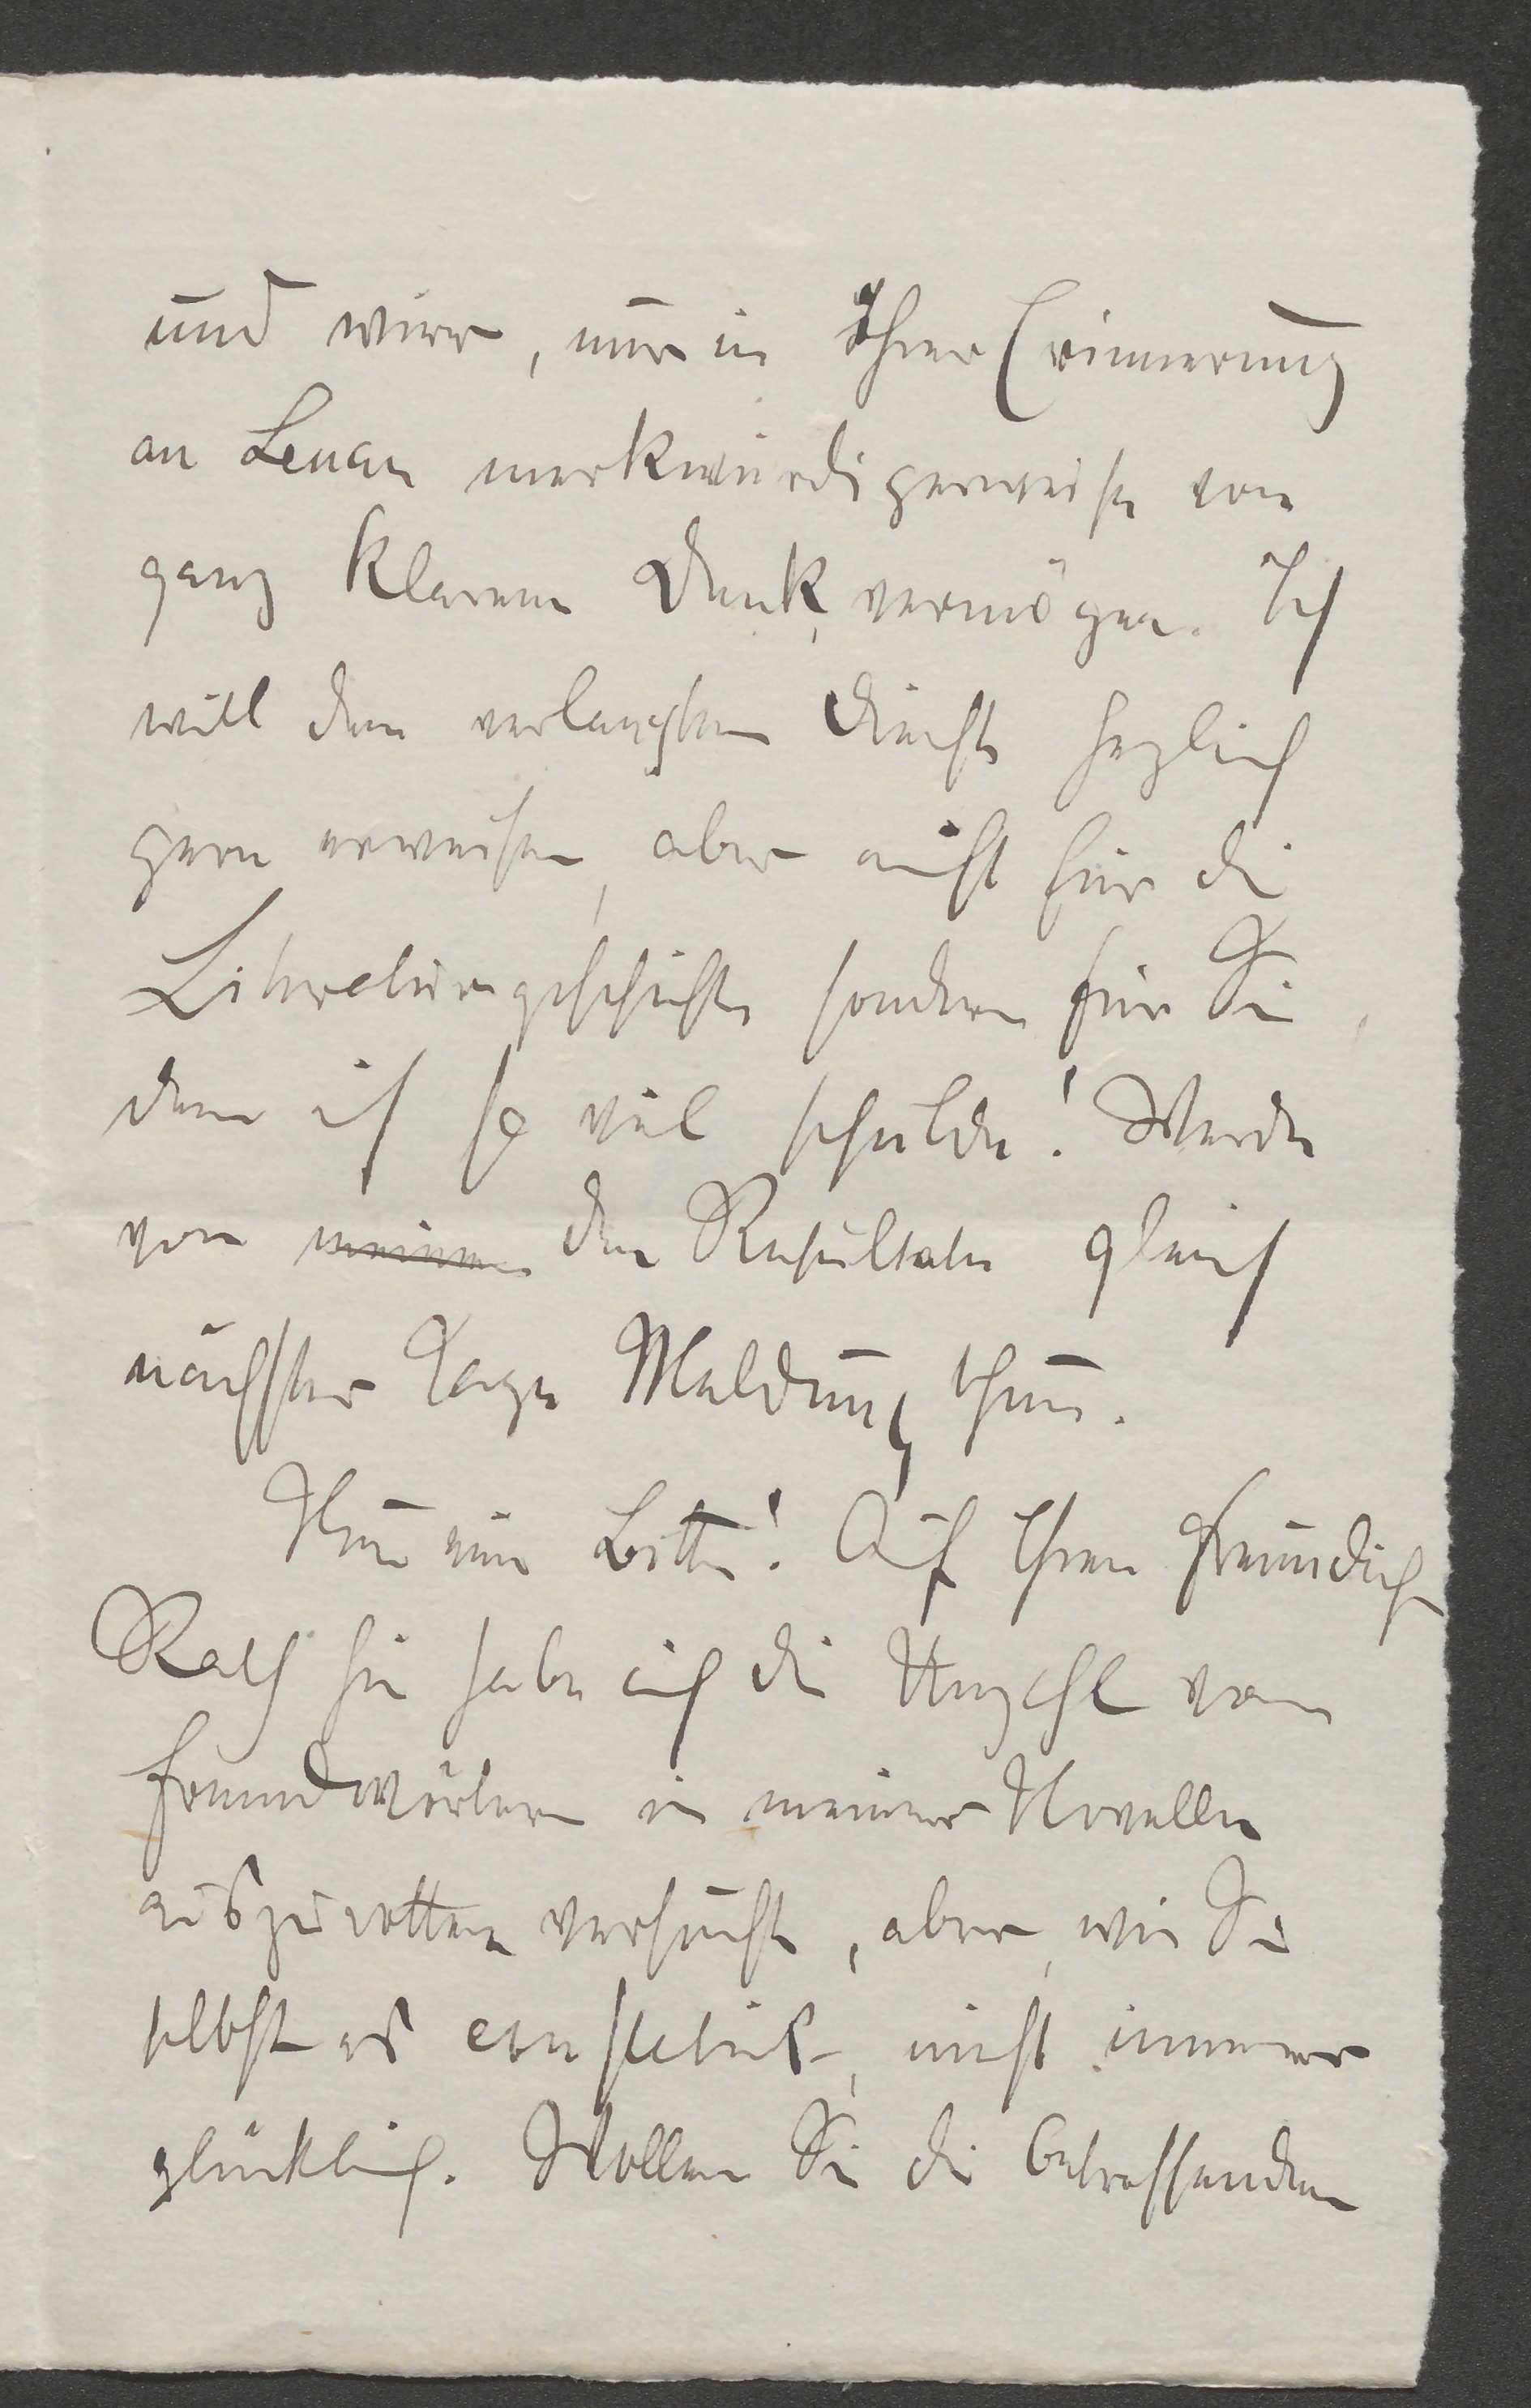 und wirr, nur in Ihrer Erinnerung
an Lenau merkwürdigerweise von
ganz klarem Denkvermögen. Ich
will den verlangten Dienst herzlich
gern erweisen, aber nicht für die
Literaturgeschichte sondern für Sie,
dem ich so viel schulde! Werde
von meinen den Resultaten gleich
nächster Tage Meldung thun.
Nun eine Bitte! Auf Ihren freundlichen
Rath hin habe ich die Unzahl von
Fremdwörtern in meiner Novelle
auszurotten versucht, aber, wie Sie
selbst es nicht immer
glücklich. Wollen Sie die betreffenden